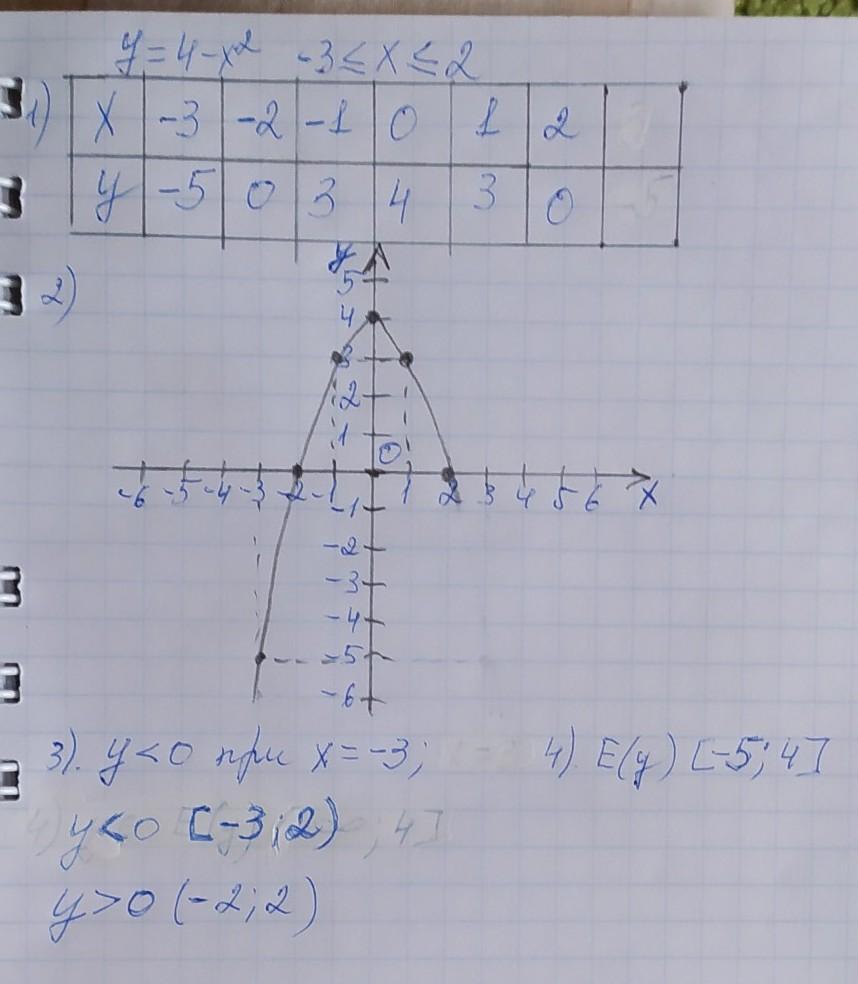 y=4-x² -3≤x≤2
1)
x -3 -2 -1 0 1 2
y -5 0 3 4 3 0
2)
y
5
4
3
2
1
0
-6 -5 -4 -3 -2 -1 1 2 3 4 5 6 x
-1
-2
-3
-4
-5
-6
3). y<0 при x=-3; 4) E(y) [-5;4]
y<0 [-3;2)
y>0 (-2;2)